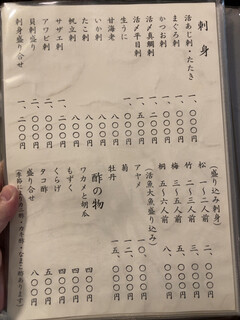 刺身
活あじ刺・たたき
まぐろ刺
かつお刺
活〆真鯛刺
活〆平目刺
生うに
甘海老 八〇〇円
いか刺 八〇〇円
たこ刺 八〇〇円
帆立刺 八〇〇円
サザエ刺
アワビ刺
貝刺盛り 二、〇〇〇円
刺身盛り合せ 一、二〇〇円
(盛り込み刺身)
松 一～二人前 二、〇〇〇円
竹 二～三人前 三、〇〇〇円
梅 三～五人前 五、〇〇〇円
桐 五～六人前 八、〇〇〇円
(活魚大魚盛り込み)
アヤメ
菊
牡丹 一五、〇〇〇円
酢の物
ワカメと胡瓜 四〇〇円
もずく 四〇〇円
くらげ 四〇〇円
タコ酢 五〇〇円
盛り合せ 八〇〇円
カキ酢・なまこ酢あります)